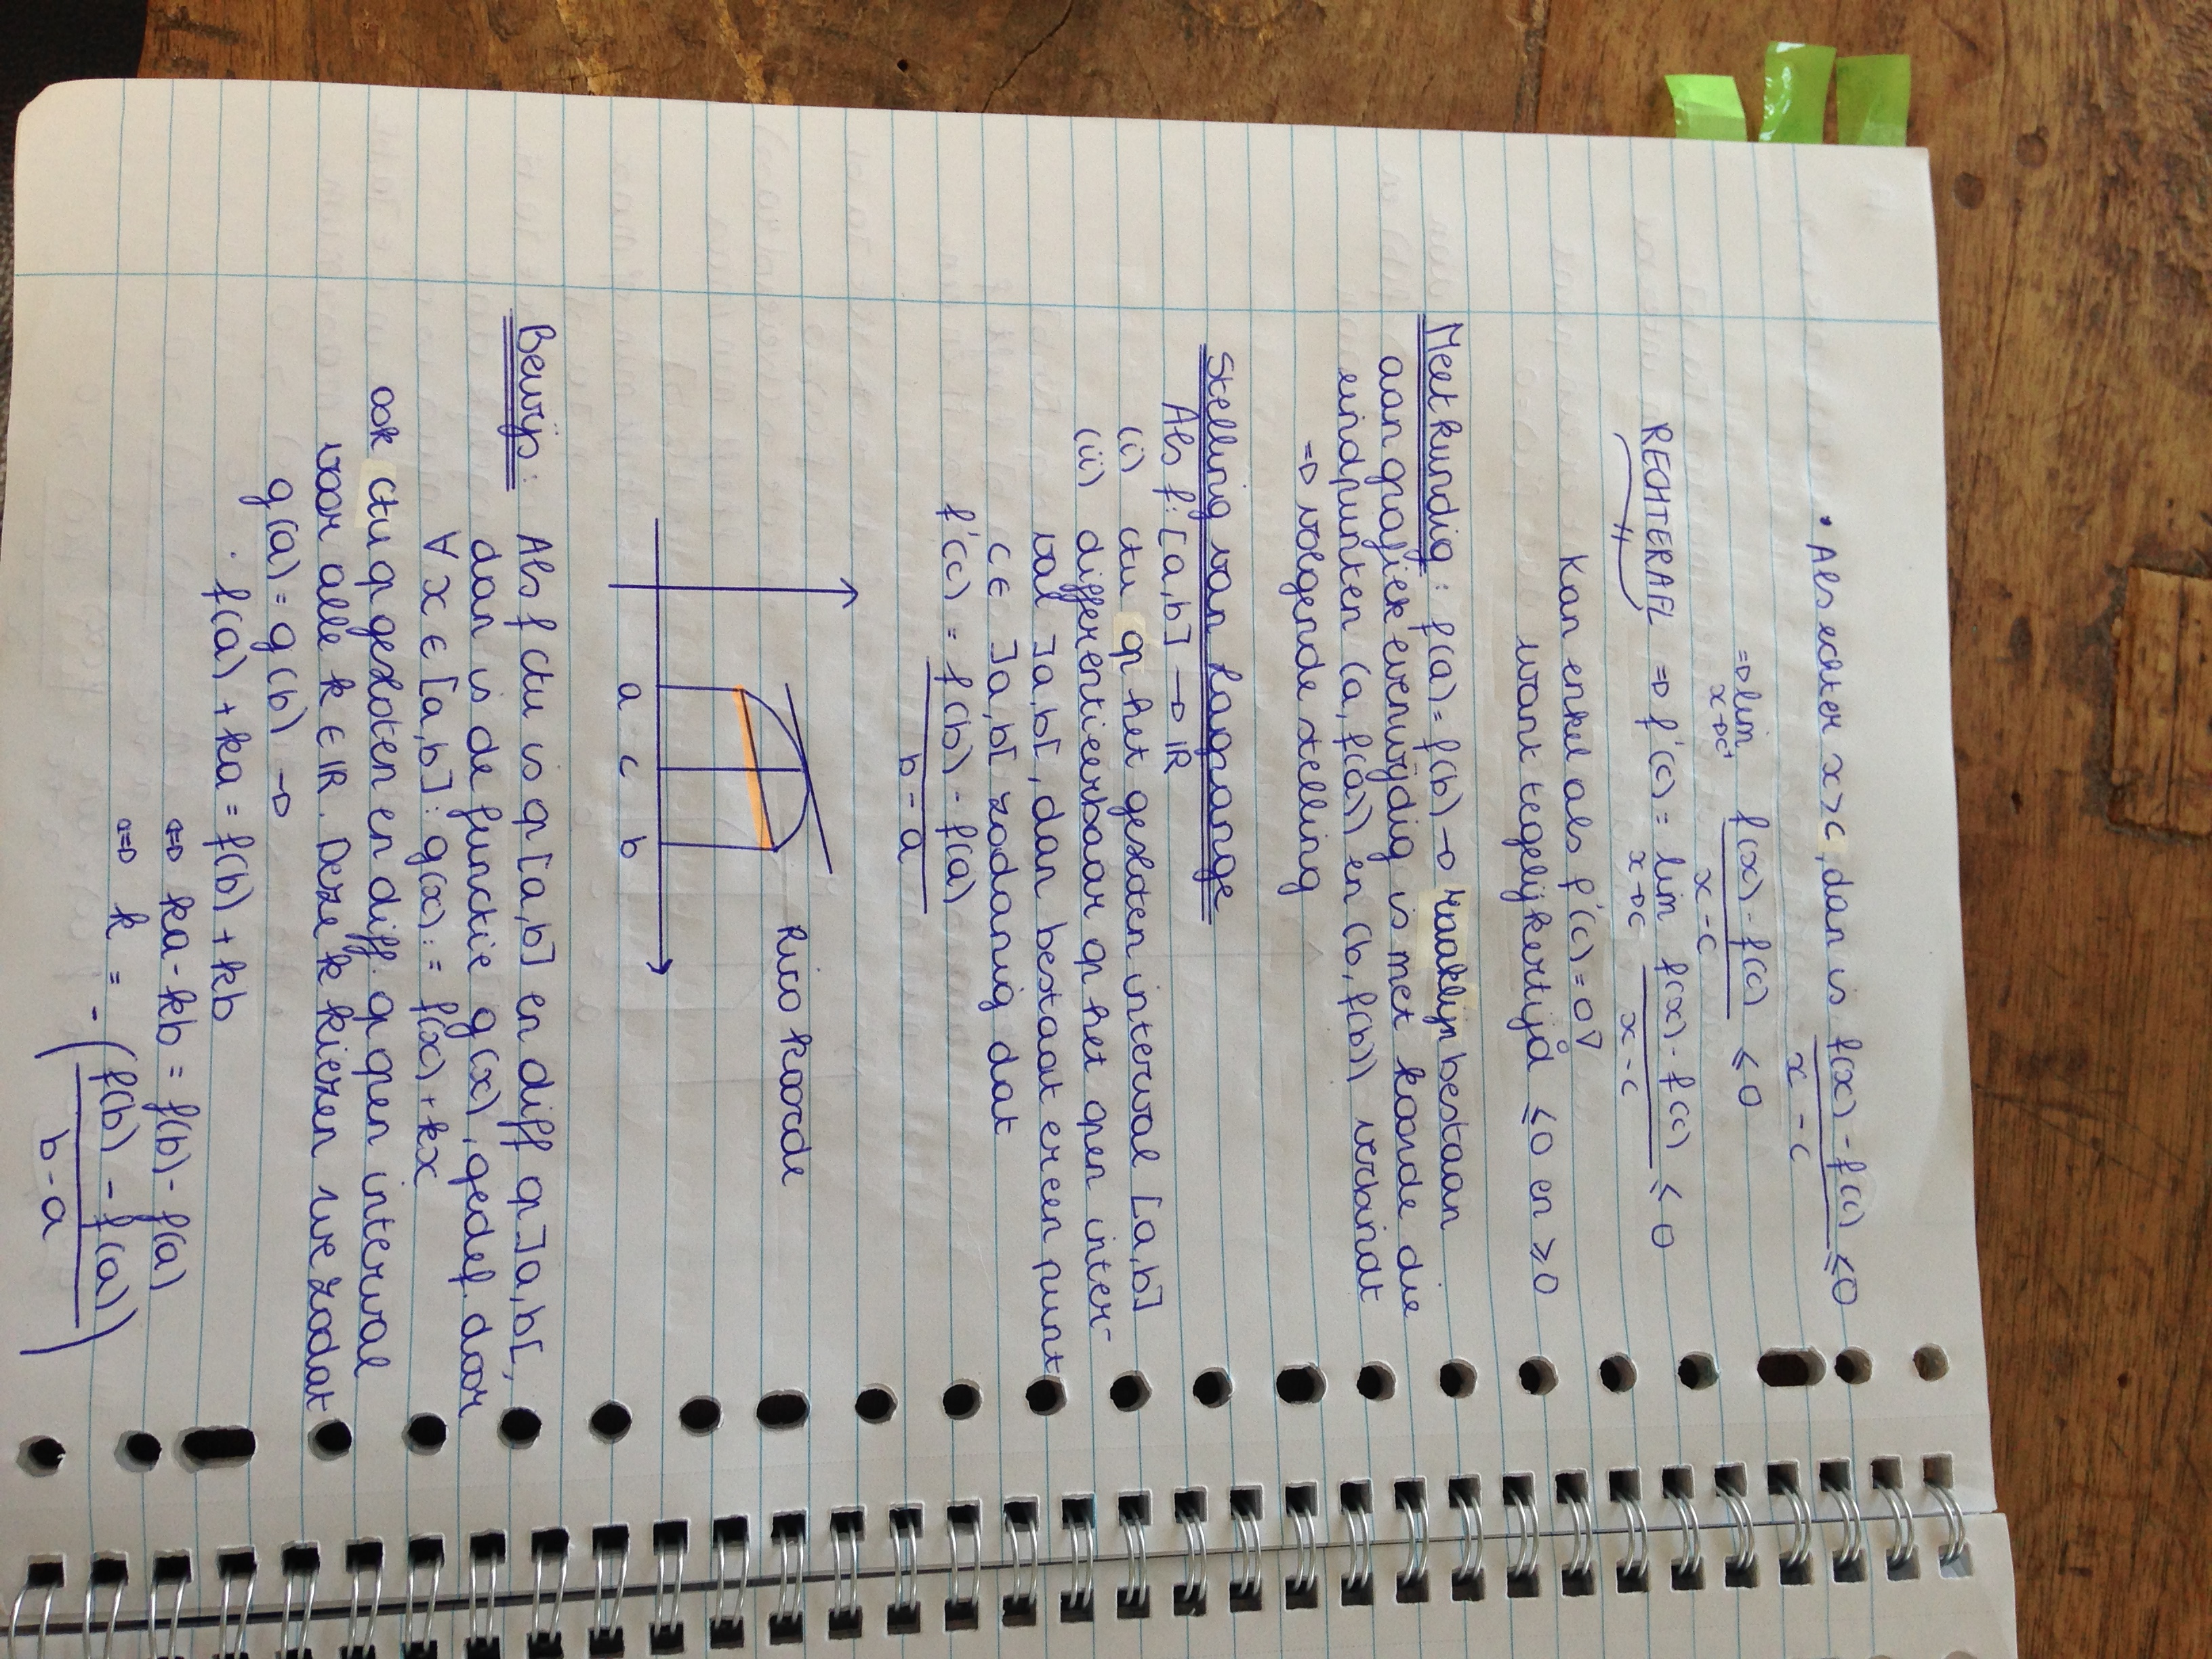 • Als echter x>c, dan is (f(x) - f(c))/(x - c) ≤ 0
=> lim x→c⁺ (f(x) - f(c))/(x - c) ≤ 0
RECHTERAFL => f'(c) = lim x→c (f(x) - f(c))/(x - c) ≤ 0
Kan enkel als f'(c) = 0!
want tegelijkertijd ≤0 en ≥0
Meetkundig: f(a) = f(b) → raaklijn bestaan
aan grafiek evenwijdig is met koorde die
eindpunten (a, f(a)) en (b, f(b)) verbindt
=> volgende stelling
Stelling van Lagrange
Als f: [a,b] → IR
(i) ctu op het gesloten interval [a,b]
(ii) differentieerbaar op het open inter-
val ]a,b[, dan bestaat er een punt
c ∈ ]a,b[ zodanig dat
f'(c) = (f(b) - f(a))/(b - a)
Rico koorde
a c b
Bewijs: Als f ctu is op [a,b] en diff op ]a,b[,
dan is de functie g(x), gedef. door
∀ x ∈ [a,b]: g(x) := f(x) + kx
ook ctu op gesloten en diff. op open interval
voor alle k ∈ IR. Deze k kiezen we zodat
g(a) = g(b) →
· f(a) + ka = f(b) + kb
<=> ka - kb = f(b) - f(a)
<=> k = - ((f(b) - f(a))/(b - a))